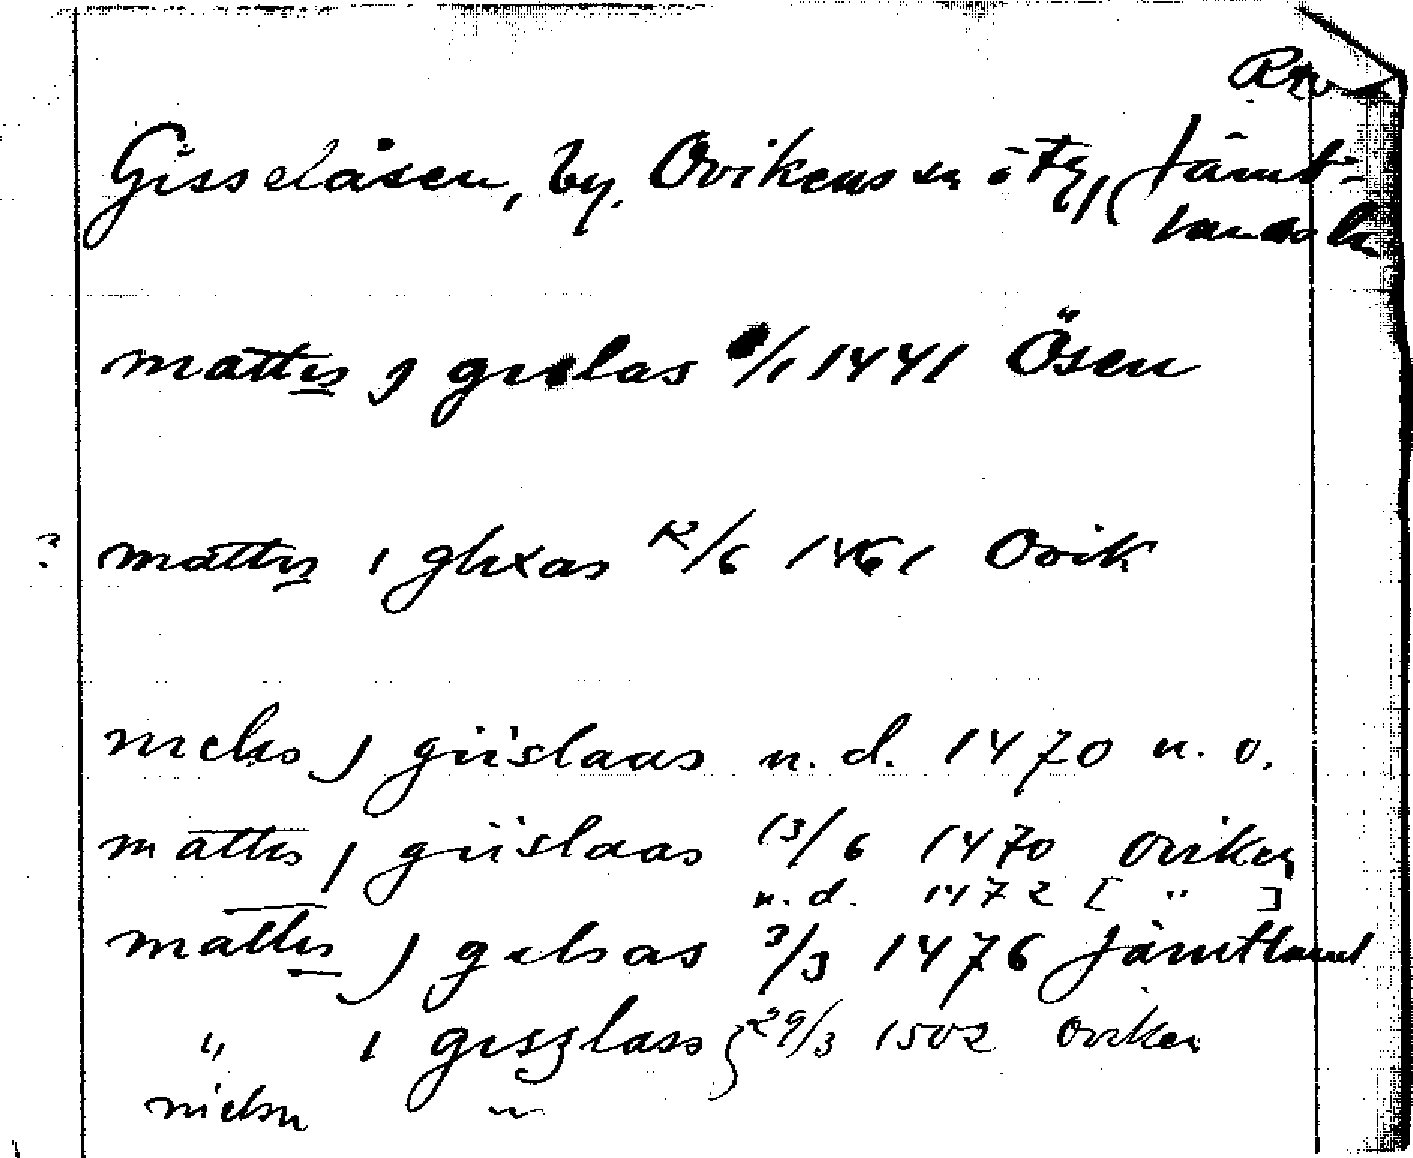 Gisselåsen, by, Ovikens sn o tg, Jämt-
lands län
mattis j gislas /1 1441 Ösen
? mattis i glixas 12/6 1461 Ovik
niclis j giislaas n. d. 1470 u. o.
mattis j giislaas 13/6 1470 oviken
n. d. 1472 [ " ]
mattis j gilsas 3/3 1476 Jämtland
" i giszlass } 29/3 1502 oviken
nielsn "